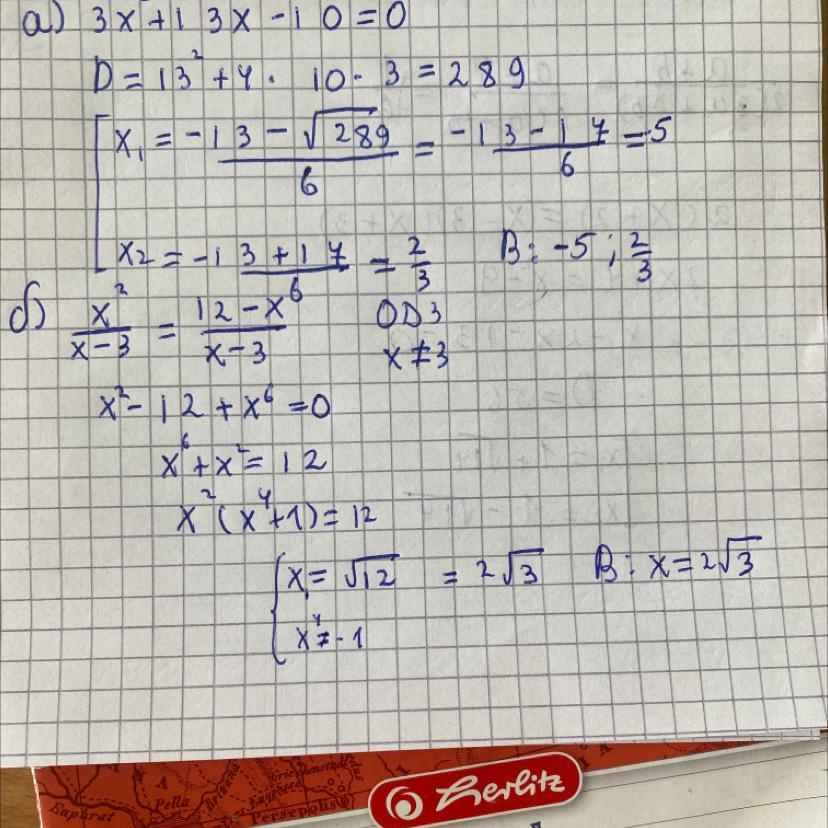 а) 3x²+13x-10=0
D=13²+4· 10·3=289
x₁ = -13-√289/6 = -13-17/6 = -5
x2 = -13+17/6 = 2/3 В: -5; 2/3
б) x²/x-3 = 12-x⁶/x-3 ОДЗ
x≠3
x²-12+x⁶=0
x⁶+x²=12
x²(x⁴+1)=12
x₁=√12 = 2√3 В: x=2√3
x⁴≠-1
Euphrat
Pella
Persepolis
Herlitz